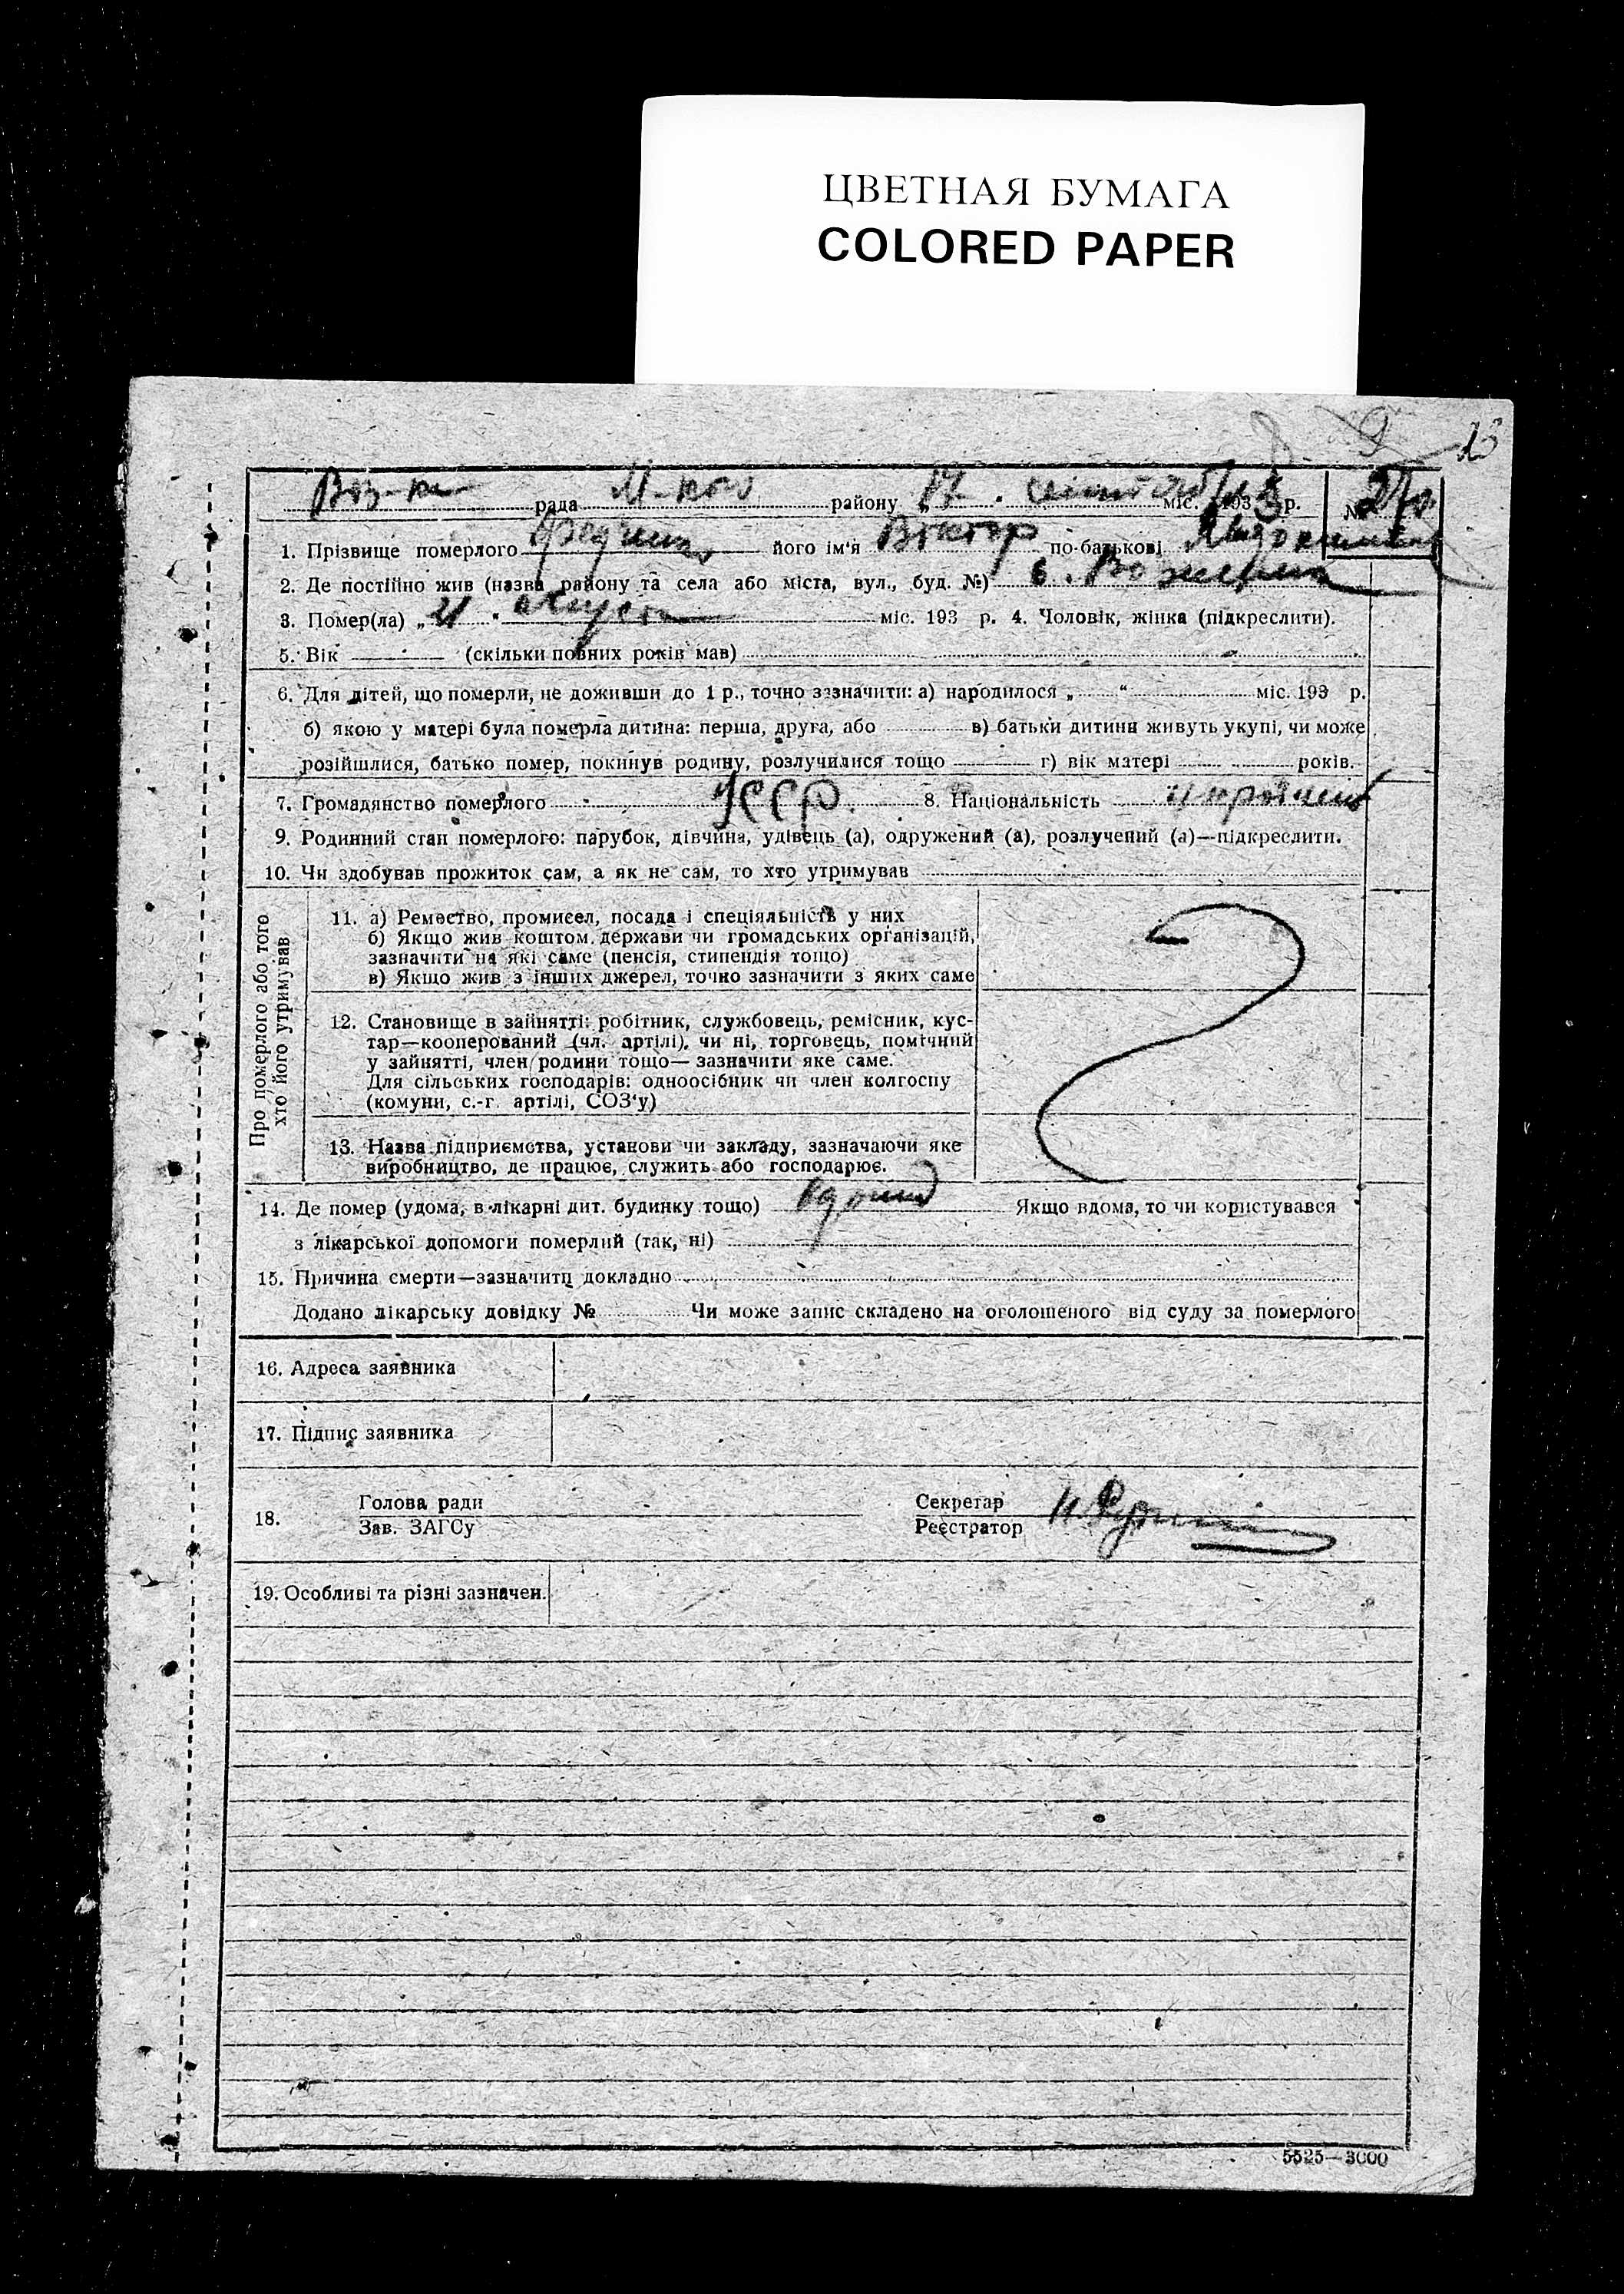 ЦВЕТНАЯ БУМАГА
COLORED PAPER
13
Воз-ка рада М-кого району „17 міс. 1933 р. №
1. Прізвище померлого його ім'я Віктор по-батькові
2. Де постійно жив (назва району та села або міста, вул., буд. №) с.
3. Помер(ла) „21 міс. 193 р. 4. Чоловік, жінка (підкреслити).
5. Вік (скільки повних років мав)
6. Для дітей, що померли, не доживши до 1 р., точно зазначити: а) народилося „ “ міс. 193 р.
б) якою у матері була померла дитина: перша, друга, або в) батьки дитини живуть укупі, чи може
розійшлися, батько помер, покинув родину, розлучилися тощо г) вік матері років.
7. Громадянство померлого УССР. 8. Національність
9. Родинний стан померлого: парубок, дівчина, удівець (а), одружений (а), розлучений (а)—підкреслити.
10. Чи здобував прожиток сам, а як не сам, то хто утримував
Про померлого або того
хто його утримував
11. а) Ремество, промисел, посада і спеціяльність у них
б) Якщо жив коштом держави чи громадських організацій,
зазначити на які саме (пенсія, стипендія тощо)
в) Якщо жив з інших джерел, точно зазначити з яких саме
12. Становище в зайнятті: робітник, службовець, ремісник, кус-
тар—кооперований (чл. артілі), чи ні, торговець, помічний
у зайнятті, член родини тощо— зазначити яке саме.
Для сільських господарів: одноосібник чи член колгоспу
(комуни, с.-г. артілі, СОЗ'у)
13. Назва підприємства, установи чи закладу, зазначаючи яке
виробництво, де працює, служить або господарює.
14. Де помер (удома, в лікарні дит. будинку тощо) Якщо вдома, то чи користувався
з лікарської допомоги померлий (так, ні)
15. Причина смерти—зазначити докладно
Додано лікарську довідку № Чи може запис складено на оголошеного від суду за померлого
16. Адреса заявника
17. Підпис заявника
18. Голова ради Секретар
Зав. ЗАГСу Реєстратор
19. Особливі та різні зазначен.
5525—3000